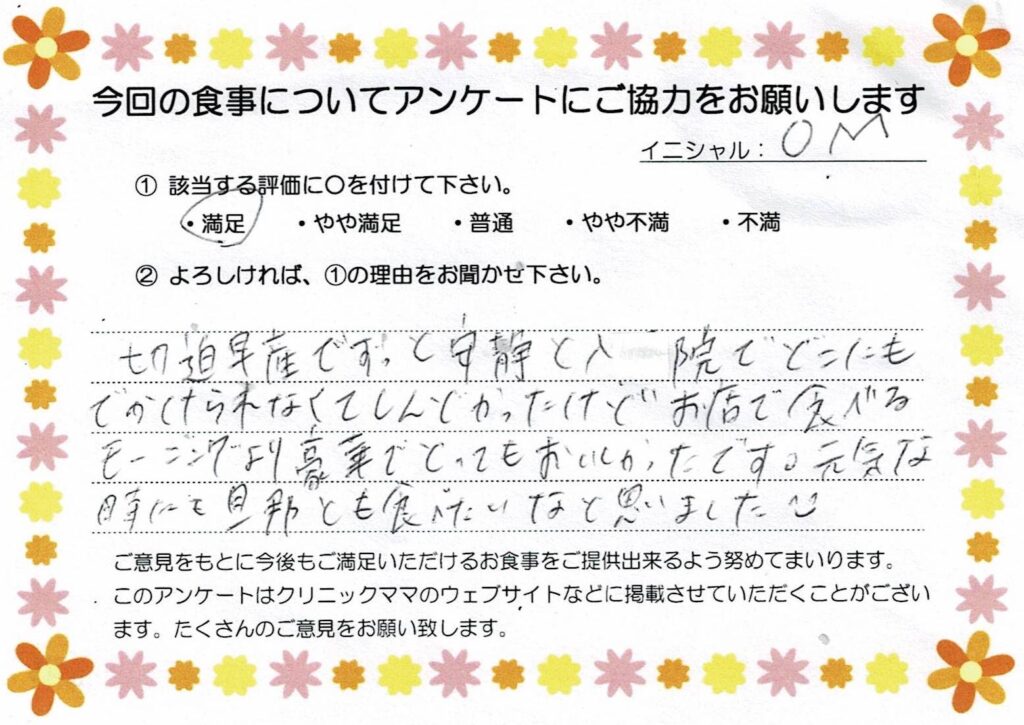 今回の食事についてアンケートにご協力をお願いします
イニシャル：OM
① 該当する評価に○を付けて下さい。
・満足 ・やや満足 ・普通 ・やや不満 ・不満
② よろしければ、①の理由をお聞かせ下さい。
切迫早産でずっと安静と入院でどこにも
でかけられなくてしんどかったけどお店で食べる
モーニングより豪華でとってもおいしかったです。元気な
時にも旦那とも食べたいなと思いました
ご意見をもとに今後もご満足いただけるお食事をご提供出来るよう努めてまいります。
このアンケートはクリニックママのウェブサイトなどに掲載させていただくことがござい
ます。たくさんのご意見をお願い致します。